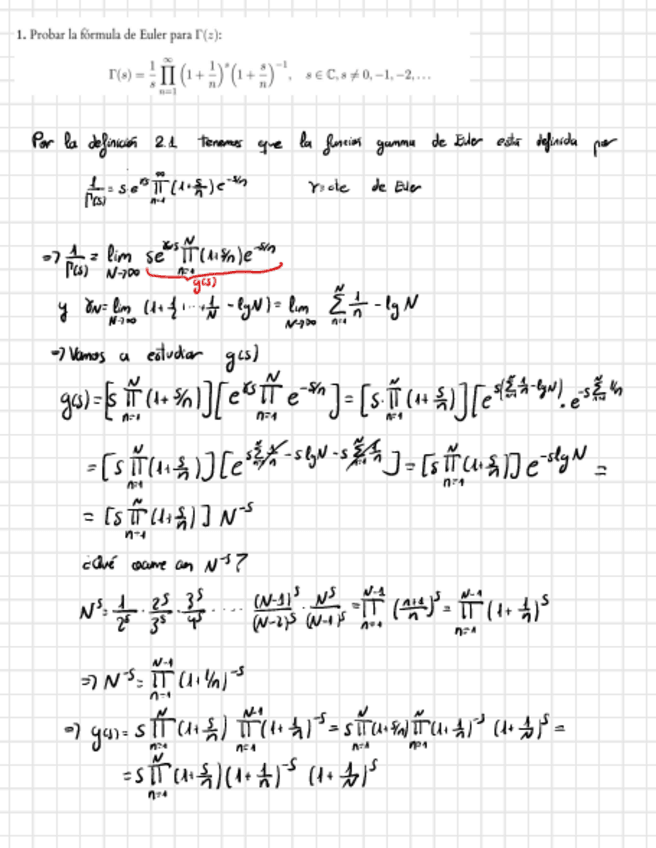 1. Probar la fórmula de Euler para Γ(z):
Γ(s) = 1/s ∏_{n=1}^{∞} (1 + 1/n)^s (1 + s/n)^{-1}, s ∈ ℂ, s ≠ 0, −1, −2, …
Por la definición 2.1 tenemos que la función gamma de Euler está definida por
1/Γ(s) = s e^{γs} ∏_{n=1}^{∞} (1+s/n) e^{-s/n} γ=cte de Euler
⇒ 1/Γ(s) = lim_{N→∞} s e^{γs} ∏_{n=1}^{N} (1+s/n) e^{-s/n}
g(s)
y γ_N = lim_{N→∞} (1+1/2+⋯+1/N - lg N) = lim_{N→∞} ∑_{n=1}^{N} 1/n - lg N
⇒ Vamos a estudiar g(s)
g(s) = [s ∏_{n=1}^{N} (1+s/n)] [e^{γs} ∏_{n=1}^{N} e^{-s/n}] = [s·∏_{n=1}^{N} (1+s/n)] [e^{s(∑_{n=1}^{N} 1/n - lg N)} · e^{-s ∑_{n=1}^{N} 1/n}
= [s ∏_{n=1}^{N} (1+s/n)] [e^{s ∑_{n=1}^{N} 1/n - s lg N - s ∑_{n=1}^{N} 1/n}] = [s ∏_{n=1}^{N} (1+s/n)] e^{-s lg N} =
= [s ∏_{n=1}^{N} (1+s/n)] N^{-s}
¿Qué ocurre con N^{-s}?
N^s = 1/2^s · 2^s/3^s · 3^s/4^s · ⋯ (N-1)^s/(N-2)^s · N^s/(N-1)^s = ∏_{n=1}^{N-1} ((n+1)/n)^s = ∏_{n=1}^{N-1} (1+1/n)^s
⇒ N^{-s} = ∏_{n=1}^{N-1} (1+1/n)^{-s}
⇒ g(s) = s ∏_{n=1}^{N} (1+s/n) ∏_{n=1}^{N-1} (1+1/n)^{-s} = s ∏_{n=1}^{N} (1+s/n) ∏_{n=1}^{N} (1+1/n)^{-s} (1+1/N)^s =
= s ∏_{n=1}^{N} (1+s/n) (1+1/n)^{-s} (1+1/N)^s